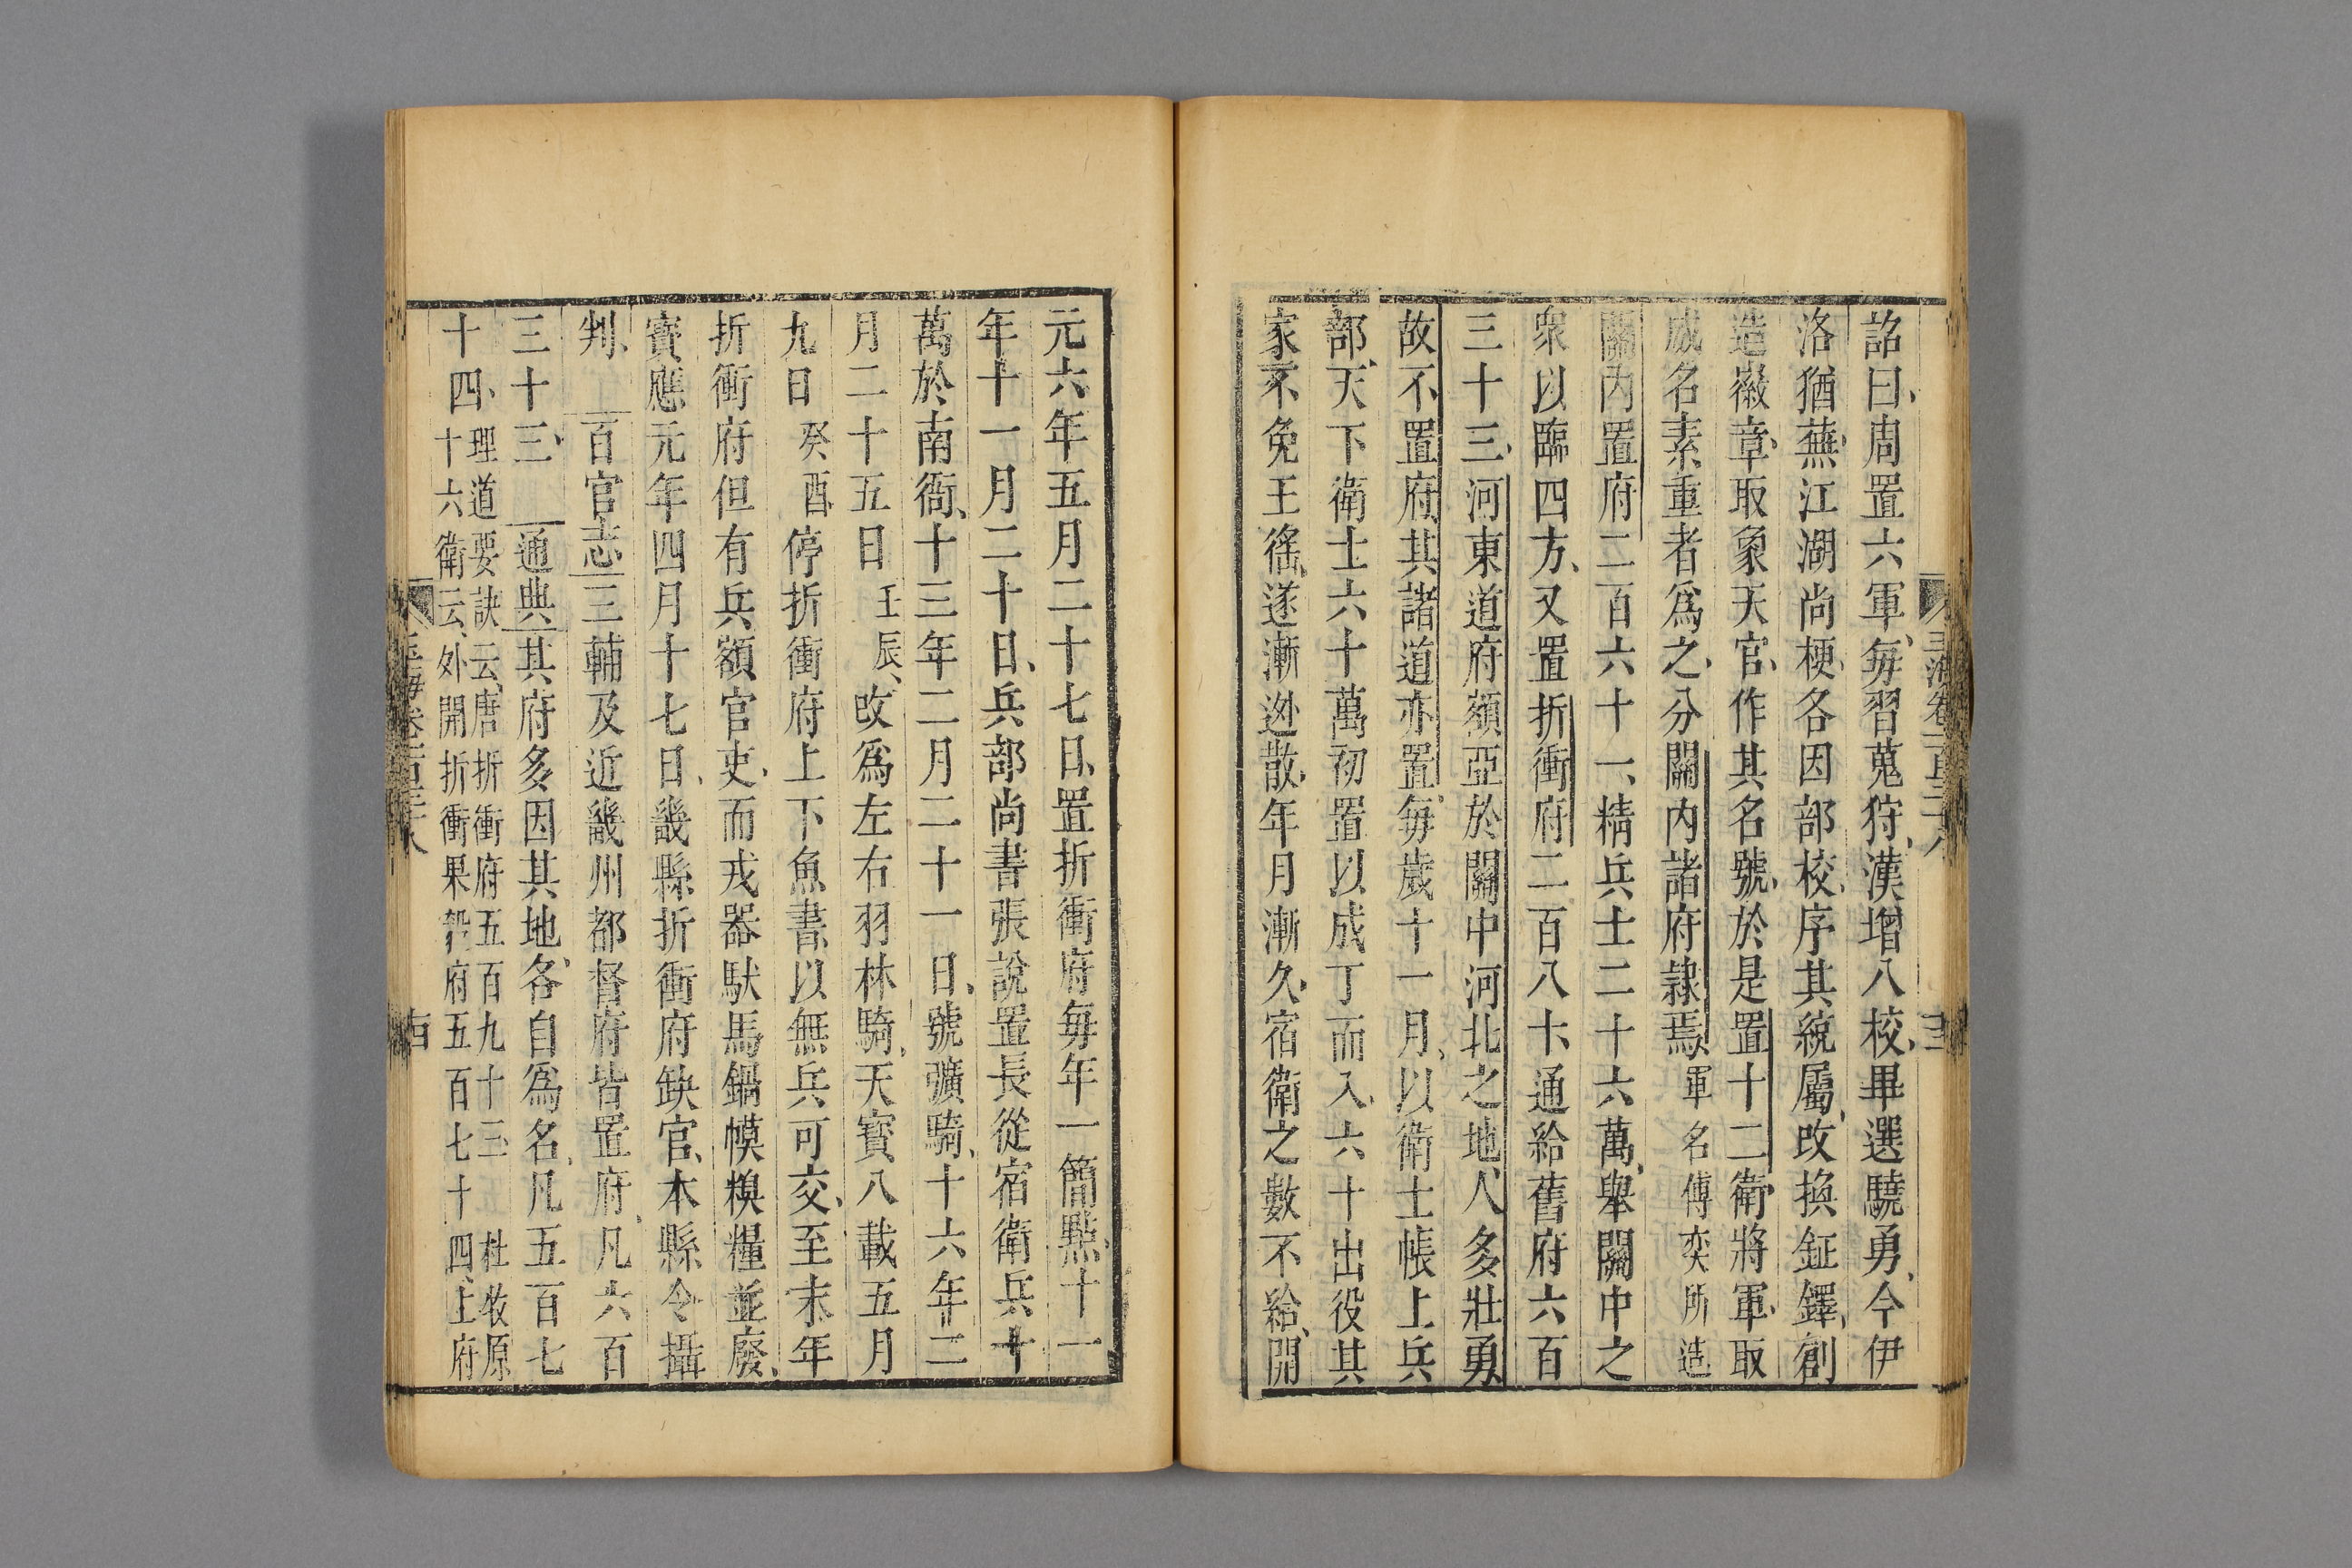 詔曰周置六軍每習蒐狩漢增八校畢選驍勇今伊
洛猶蕪江湖尚梗各因部校序其統屬改換鉦鐸創
造徽章取象天官作其名號於是置十二衛將軍取
威名素重者爲之分關內諸府隷焉軍名傅奕所造
關內置府二百六十一精兵士二十六萬舉關中之
衆以臨四方又置折衝府二百八十通給舊府六百
三十三河東道府額亞於關中河北之地人多壯勇
故不置府其諸道亦置每歲十一月以衛士帳上兵
部天下衛士六十萬初置以成丁而入六十出役其
家不免王徭遂漸逃散年月漸久宿衛之數不給開
元六年五月二十七日置折衝府每年一簡點十一
年十一月二十日兵部尚書張說置長從宿衛兵十
萬於南衙十三年二月二十一日號彍騎十六年二
月二十五日壬辰改爲左右羽林騎天寶八載五月
九日癸酉停折衝府上下魚書以無兵可交至末年
折衝府但有兵額官吏而戎器馱馬鍋幙糗糧並廢
寶應元年四月十七日畿縣折衝府缺官本縣令攝
判百官志三輔及近畿州都督府皆置府凡六百
三十三通典其府多因其地各自爲名凡五百七
十四理道要訣云唐折衝府五百九十三杜牧原
十六衛云外開折衝果毅府五百七十四上府